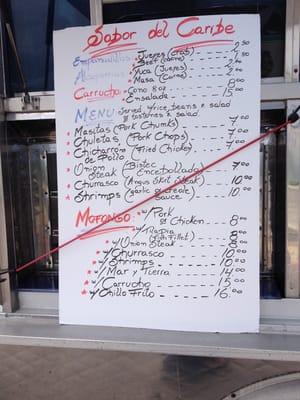 Sabor del Caribe
Empanadillas * Jueyes (crab) 2.50
* Beef (carne) 2.00
Alcapurrias * Yuca (Jueyes) 2.50
* Masa (Carne) 2.00
Carrucho * Cono 8oz 8.00
* Ensalada 15.00
MENU Served rice, beans & salad
or tostones & salad
* Masitas (Pork Chunks) 7.00
* Chuletas (Pork Chops) 7.00
* Chicharron (Fried Chicken) 7.00
de Pollo
* Union (Bistec
Steak Encebollado) 7.00
* Churrasco (Angus Skirt Steak) 10.00
* Shrimps (garlic or creole 10.00
Sauce)
MOFONGO * w/ Pork
or Chicken 8.00
* w/ Tilapia
(Fish Fillet) 8.00
* w/ Union Steak 8.00
* w/ Churrasco 10.00
* w/ Shrimps 10.00
* w/ Mar y Tierra 14.00
* w/ Carrucho 15.00
* w/ Chillo Frito 16.00